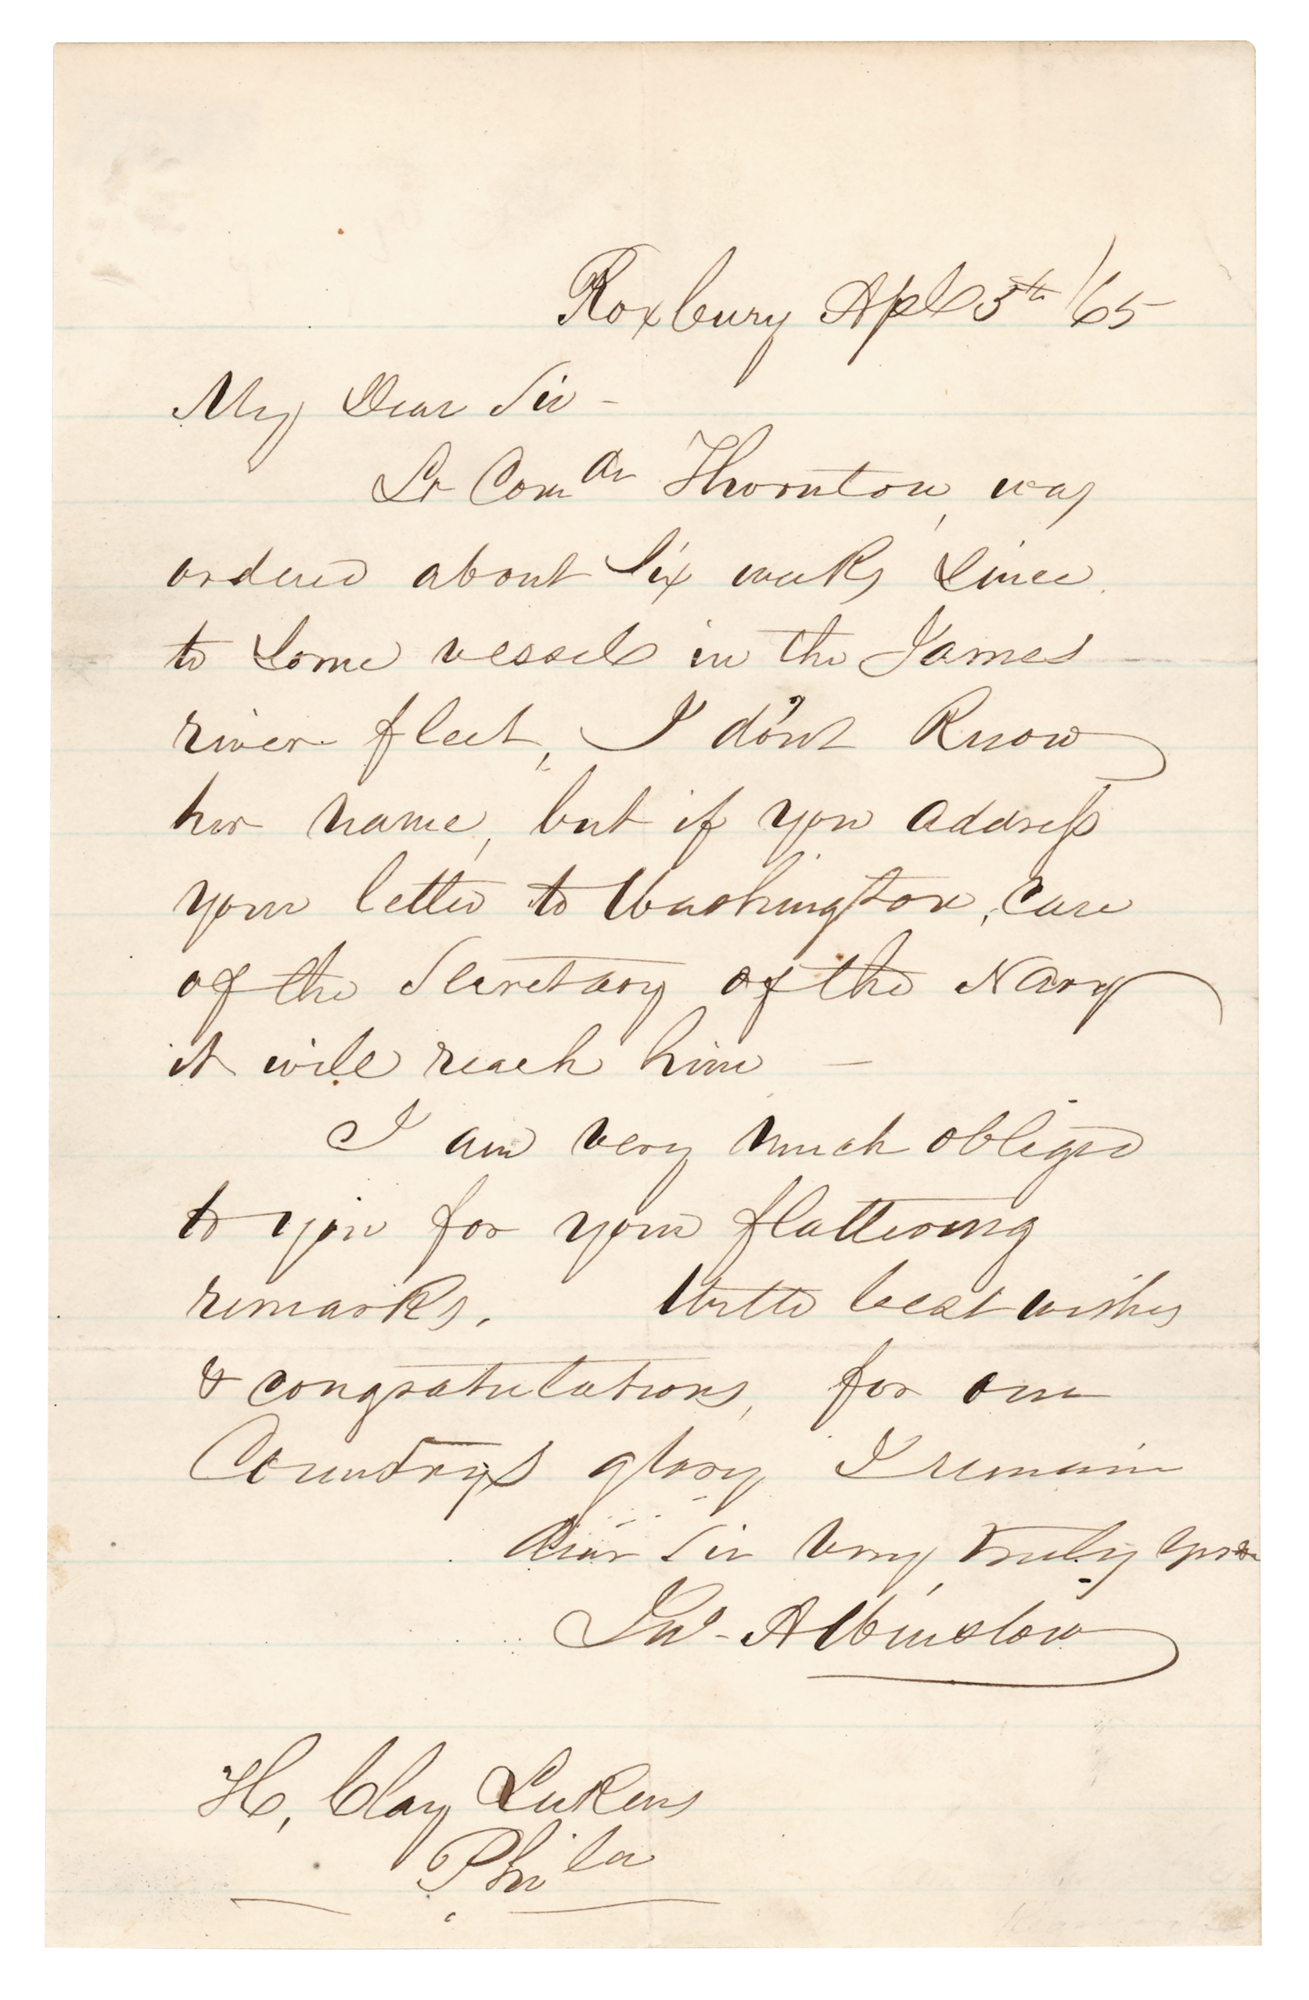 Roxbury Apl 5th /65
My Dear Sir -
Lt Comdr Thornton, was
ordered about Six weeks Since
to Some vessel in the James
river fleet, I don't Know
her name, but if you address
your letter to Washington, care
of the Secretary of the Navy
it will reach him —
I am very much obliged
to you for your flattering
remarks. With best wishes
& congratulations, for our
Countrys glory I remain
Dear Sir Very truly yrs
Jno. A Winslow
H. Clay Lukens
Phila